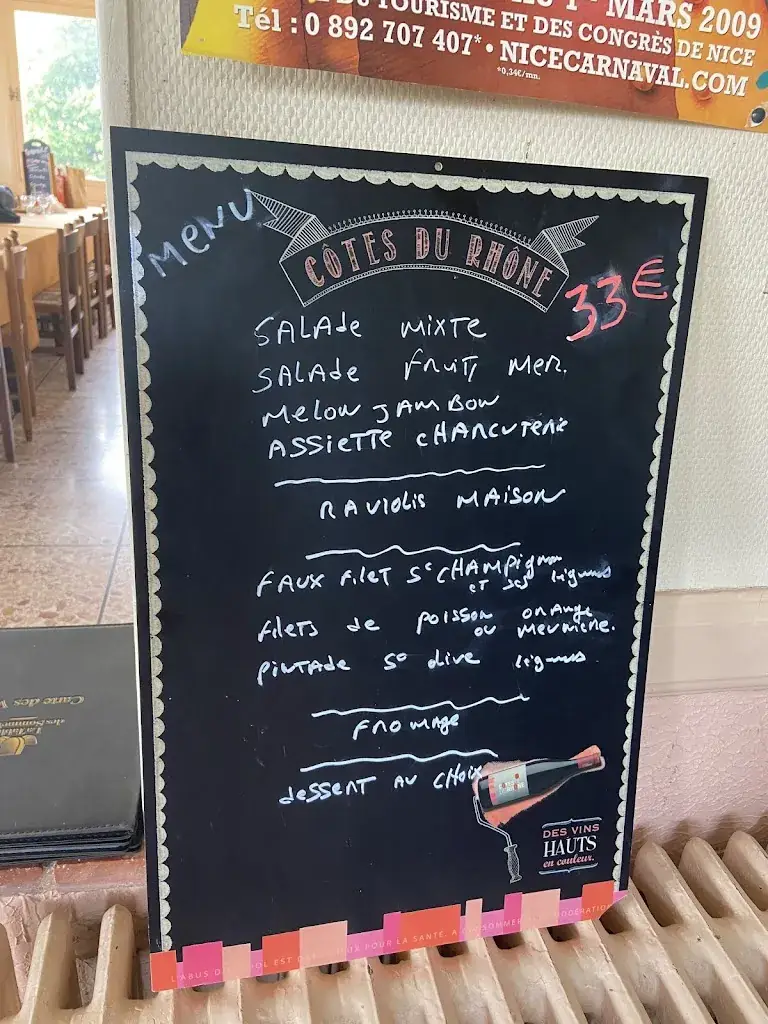 MARS 2009
TOURISME ET DES CONGRÈS DE NICE
Tél : 0 892 707 407* • NICECARNAVAL.COM
*0,34€/mn.
MENU
CÔTES DU RHÔNE
33€
SALADE MIXTE
SALADE FRUITS MER.
MELON JAMBON
ASSIETTE CHARCUTERIE
RAVIOLIS MAISON
FAUX FILET Sce CHAMPIGNON
ET SES légumes
FILETS de POISSON ORANGE
OU MEUNIÈRE.
PINTADE Sce OLIVE légumes
FROMAGE
dESSERT AU CHOIX
CÔTES DU RHÔNE
DES VINS
HAUTS
en couleur.
L'ABUS D'ALCOOL EST POUR LA SANTÉ, À CONSOMMER MODÉRATION
Carte des